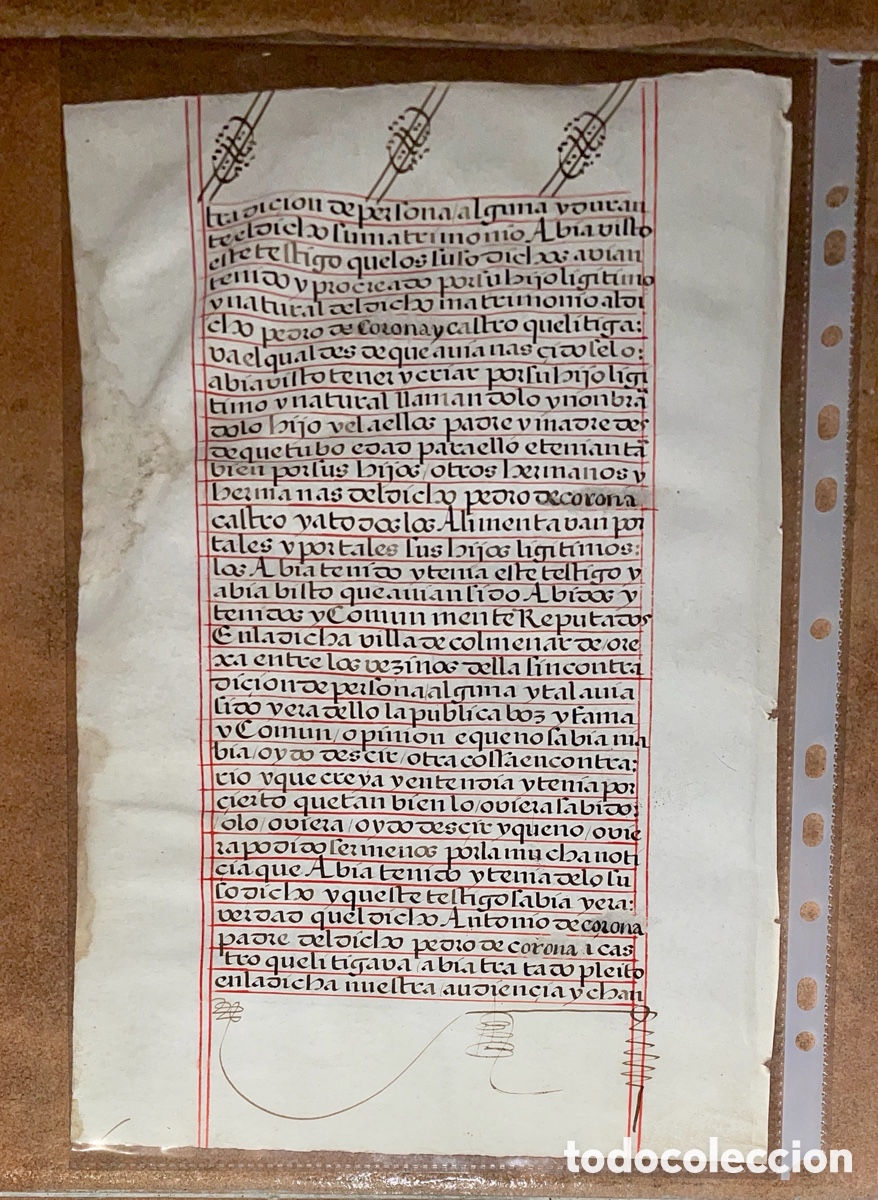 tradicion de persona / alguna y duran
te el dicho su matrimonio Abia visto
este testigo que los suso dichos avian
tenido y procreado por su hijo ligitimo
y natural del dicho matrimonio al di
cho pedro de corona y castro que litiga:
va el qual des de que avia nasçido se lo:
abia visto tener y criar por su hijo ligi
timo y natural llamandolo y nonbrã
dolo hijo y el a ellos padre y madre des
de que tubo edad para ello e tenian tã
bien por sus hijos / otros hermanos y
hermanas del dicho pedro de corona
castro y a todos los Alimentavan por
tales y por tales sus hijos ligitimos:
los Abia tenido y tenia este testigo y
abia visto que avian sido Abidos y
tenidos y Comun mente Reputados
En la dicha villa de colmenar de / ore
xa entre los vezinos della sin contra
diçion de persona / alguna y tal avia
sido y era dello la publica boz y fama
y Comun / opinion e que no sabia ni a
bia / oydo descir / otra cossa en contra:
rio y que creya y entendia y tenia por
çierto que tan bien lo / oviera sabido:
/ o lo / oviera / oydo descir y que no / ovie
ra podido ser menos por la mucha noti
çia que Abia tenido y tenia de lo su
so dicho y queste testigo sabia y era:
verdad quel dicho Antonio de corona
padre del dicho pedro de corona i cas
tro que litigava / abia tratado pleito
en la dicha nuestra audiençia y chan
todocoleccion